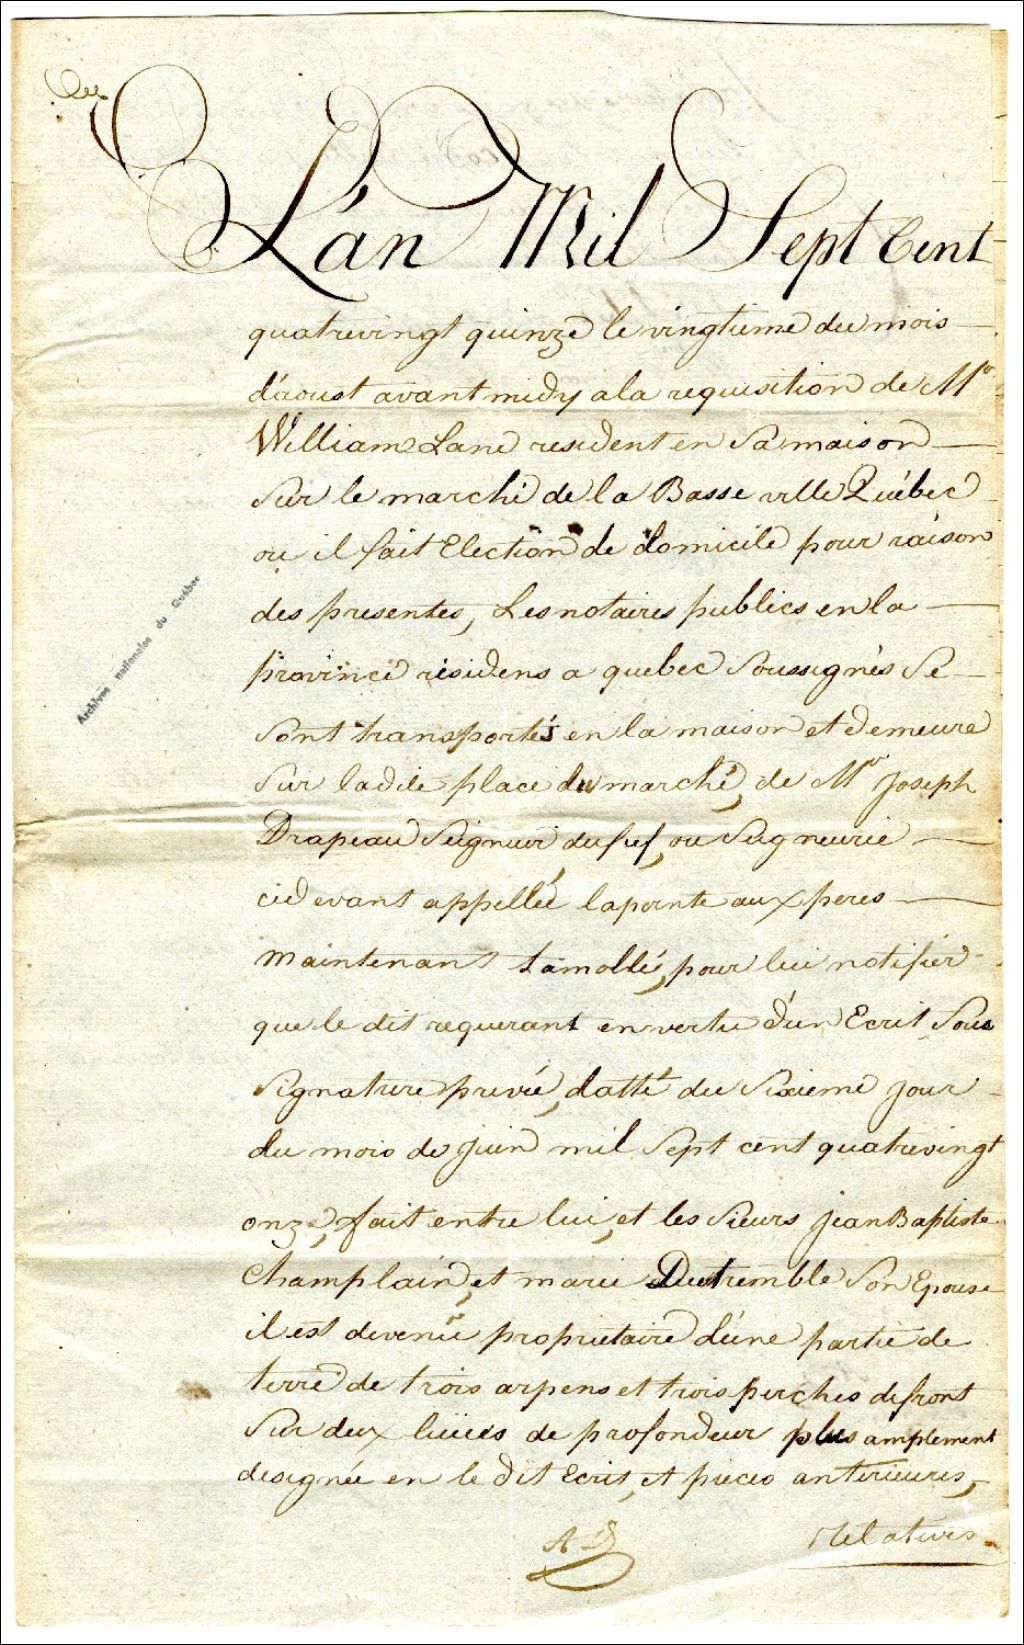 L'an Mil Sept Cent
quatrevingt quinze le vingtieme du mois
d'aoust avant midy a la requisition de Mr
William Lane resident en Sa maison
Sur le marché de la Basse ville Québec
ou il fait Election de domicile pour raison
des presentes, Les notaires publics en la
province résidens a quebec Soussignés Se
Sont transportés en la maison et demeure
Sur ladite place du marché, de Mr Joseph
Drapeau Seigneur du fief, ou Seigneurie
cidevant appellée lapointe aux peres
maintenant Lamollé, pour lui notifier
que le dit requerant en vertu d'un Ecrit Sous
Signature privée, datté du Sixieme jour
du mois de juin mil Sept cent quatrevingt
onze, fait entre lui, et les Sieurs jean Baptiste
Champlain, et marie Dutremble Son Epouse
il est devenu proprietaire d'une partie de
terre de trois arpens et trois perches de front
Sur deux lieües de profondeur plus amplement
designée en le dit Ecrit, et pieces anterieures,
A D
Relatives
Archives nationales du Québec